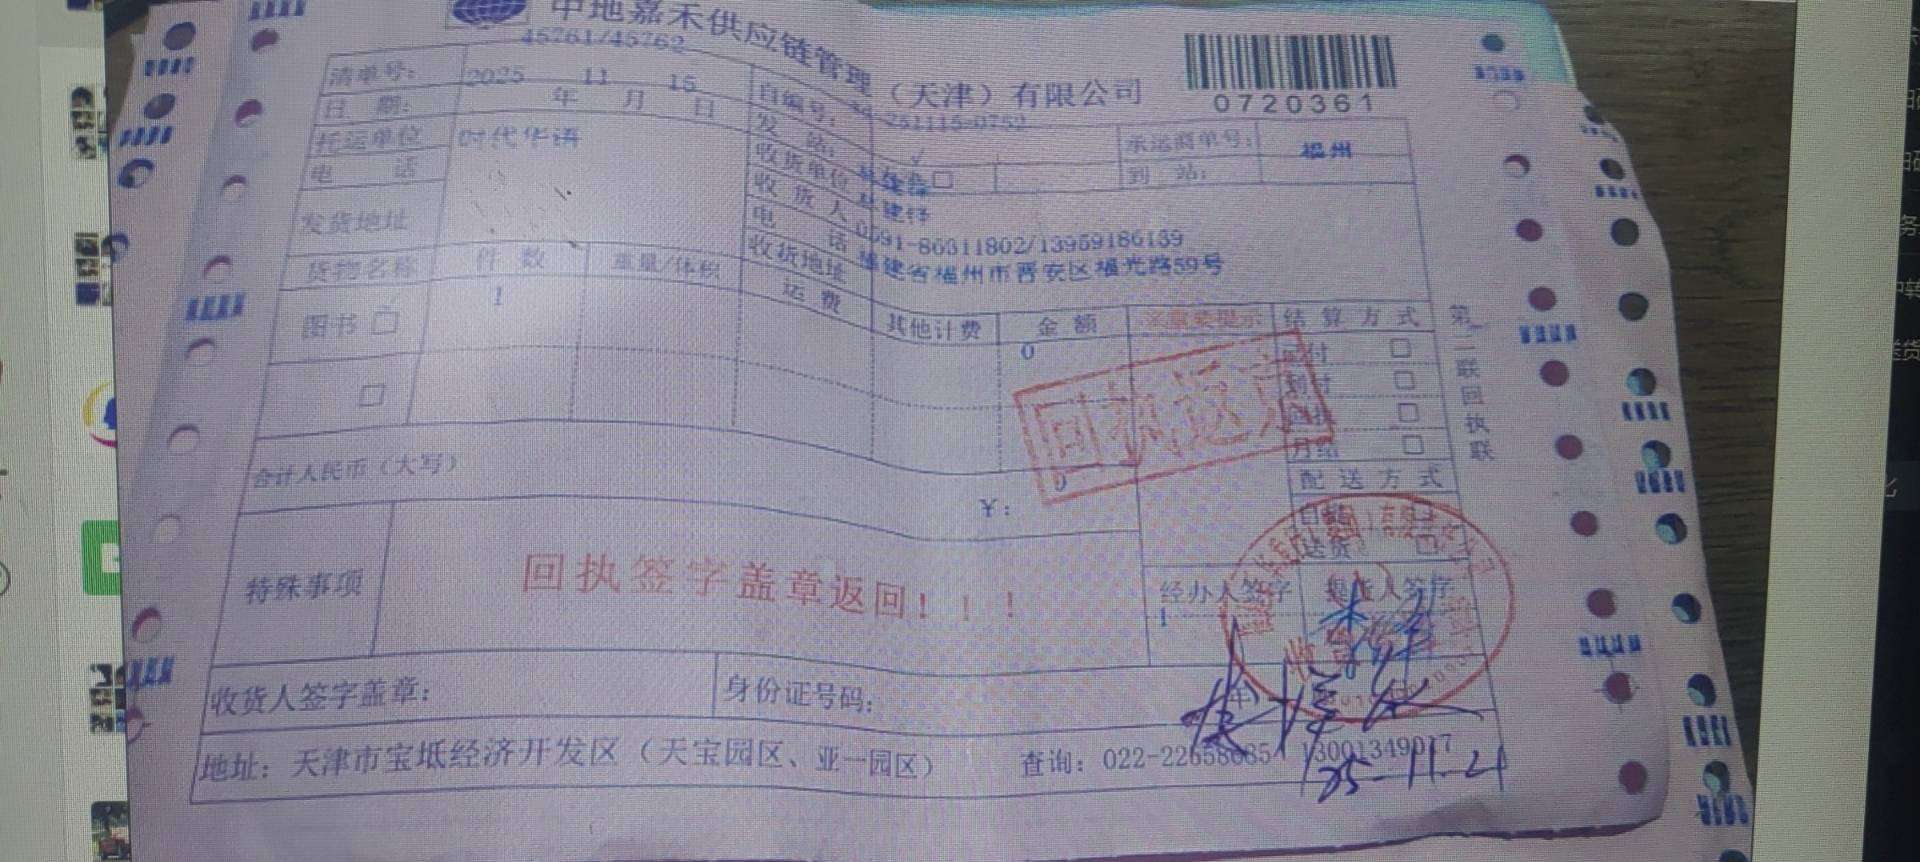 中地嘉禾供应链管理（天津）有限公司
0720361
45761/45762
清单号：
日 期： 2025 年 11 月 15 日
自编号： 251115-0752
托运单位 时代华语
发 站：
承运商单号：
到 站： 福州
电 话
收货单位
收货人
电 话 0591-86311802/13959186139
发货地址
收货地址 福建省福州市晋安区福光路59号
货物名称 件 数 重量/体积 运 费 其他计费 金 额 结 算 方 式
图书 1 0
到付
月结
合计人民币（大写） ¥： 0
配 送 方 式
送货
第二联回执联
回执返还
特殊事项 回执签字盖章返回！！！
经办人签字 提货人签字
1
收货人签字盖章： 身份证号码：
地址：天津市宝坻经济开发区（天宝园区、亚一园区） 查询：022-22658685 13001349017
25-11-21